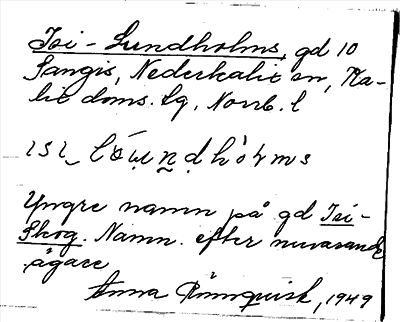 Isi-Lundholms, gd 10
Sangis, Nederkalix sn, Ka-
lix doms. lg, Norrb. l
Yngre namn på gd Isi-
Skog. Namn. efter nuvarande
ägare
Anna Rönnqvist, 1949